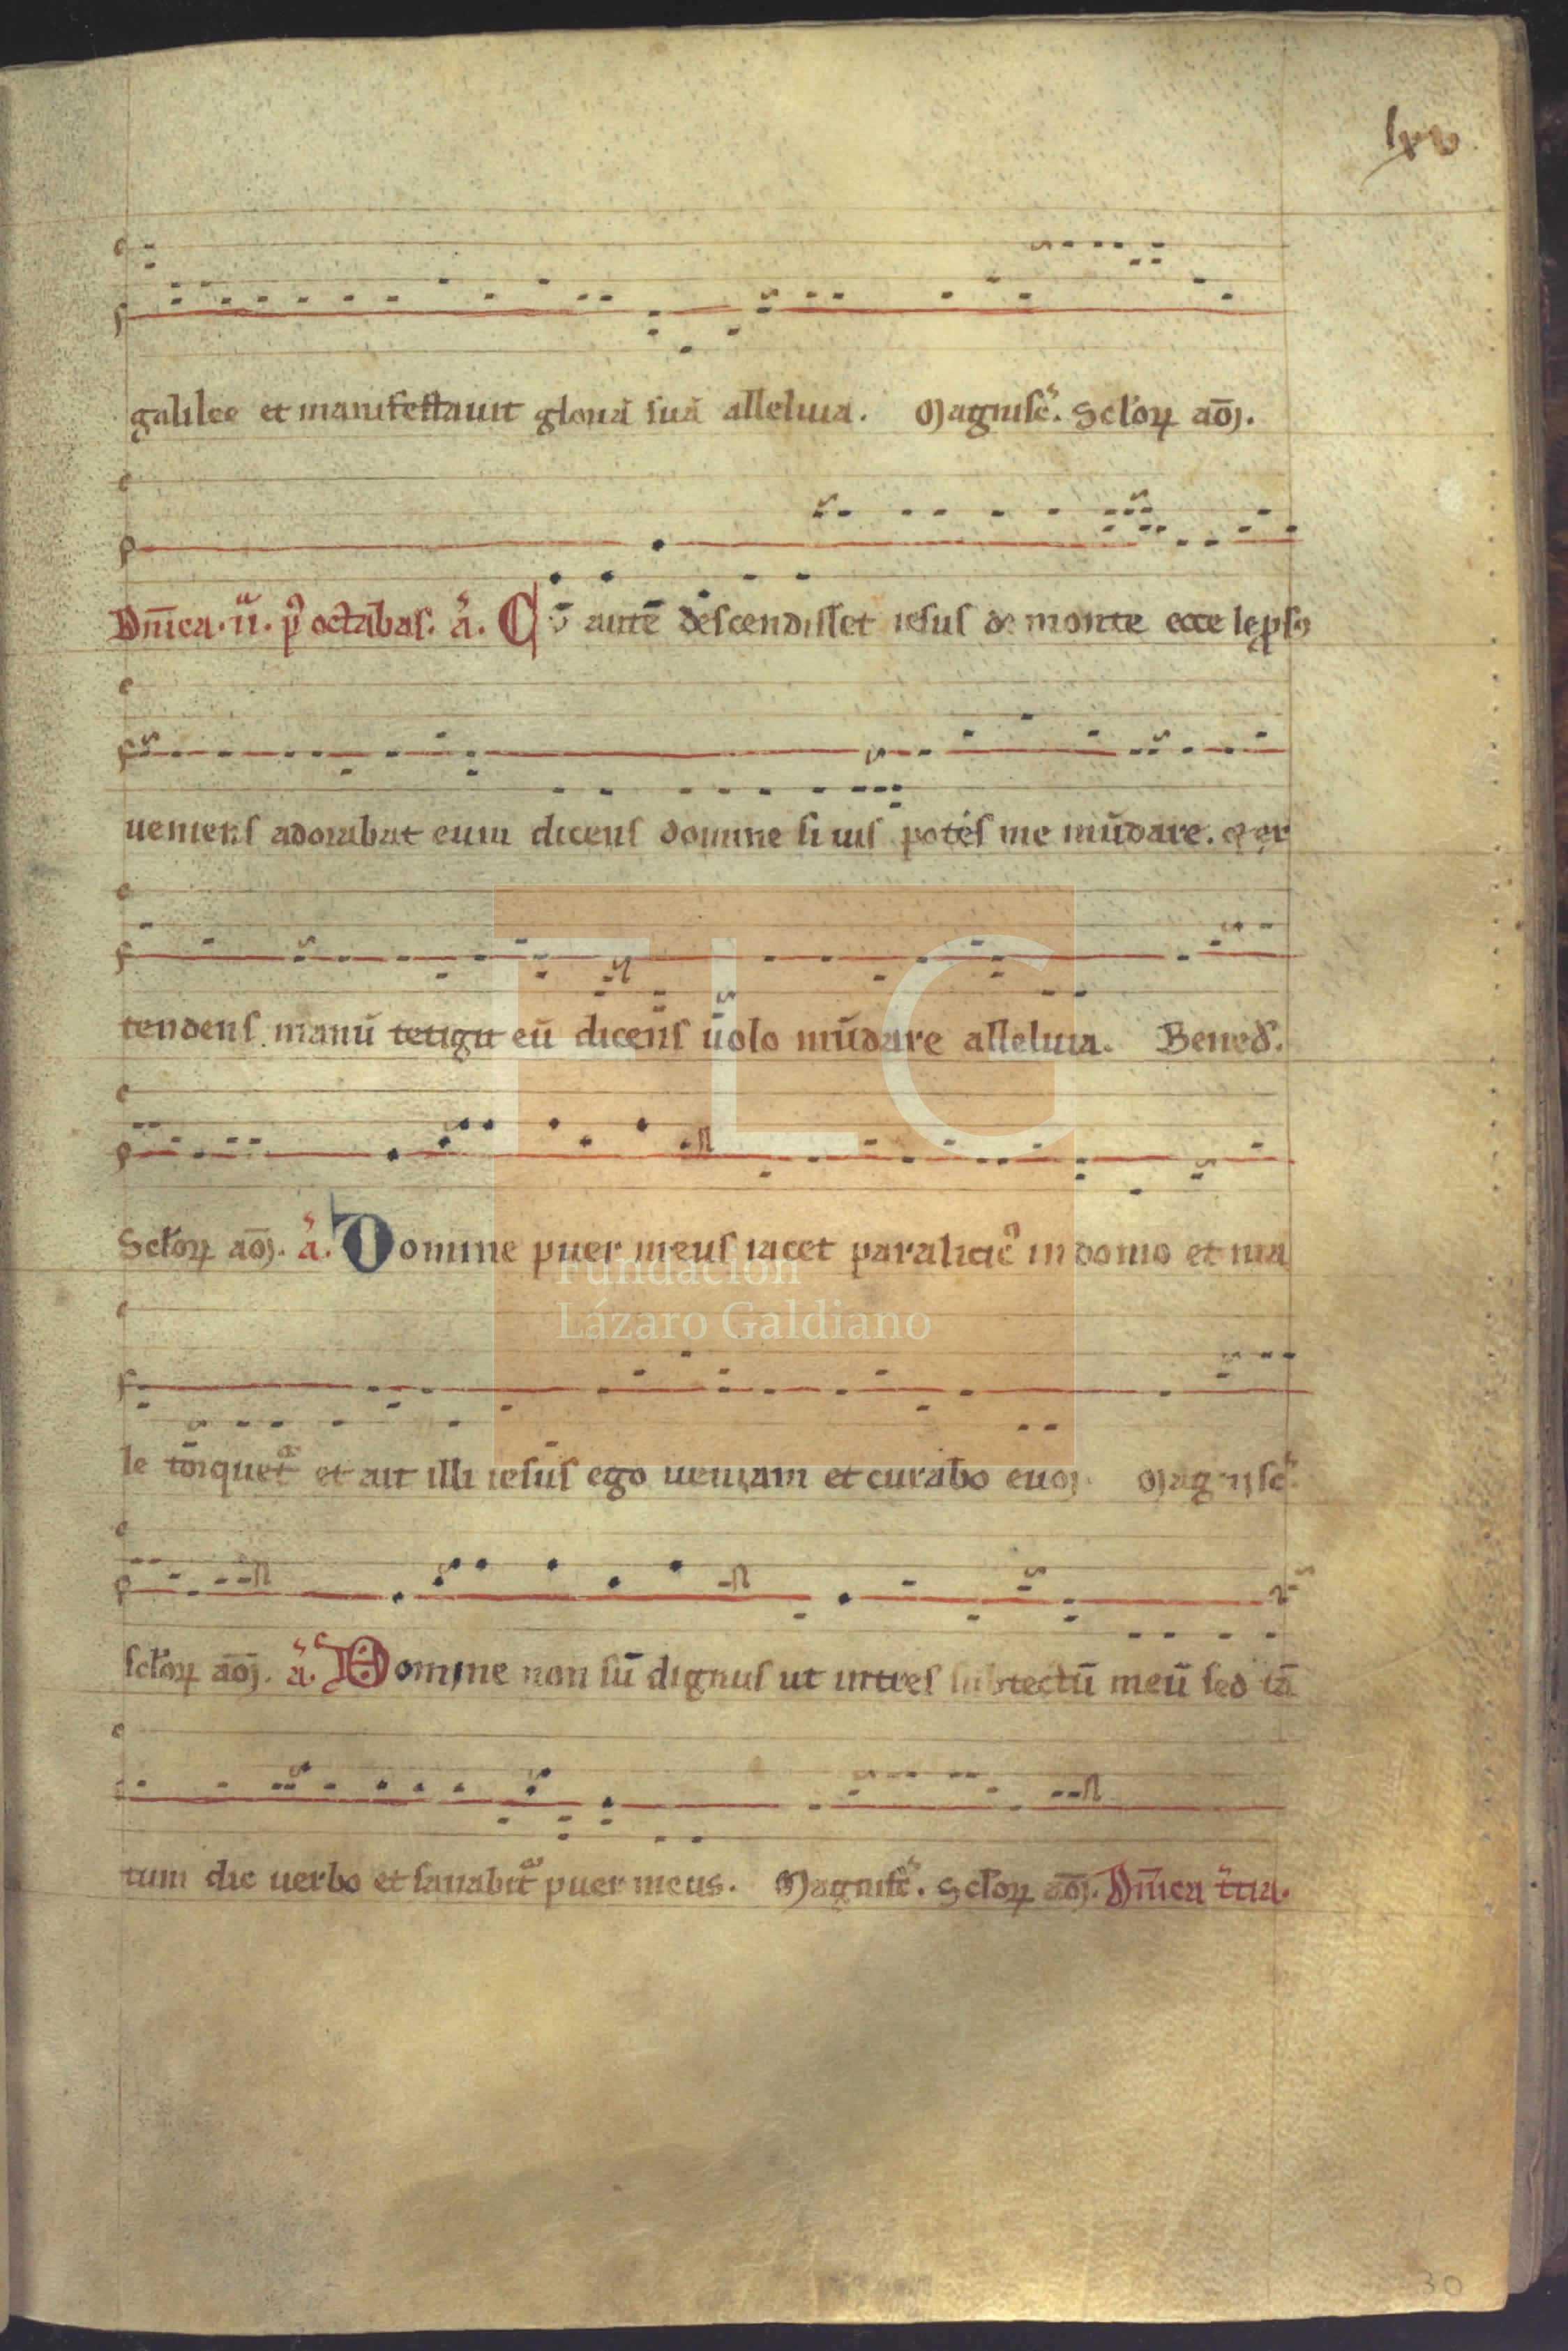 lxv
galilee et manifestauit gloriā suā alleluia. Magnifc̃. Sc̃loꝝ am̄.
Dn̄ica. ii. p̾ octabas. a. Cū autē descendisset iesus de monte ecce lep̱sꝰ
ueniens adorabat eum dicens domine si uis potes me mūdare. et ex
tendens manū tetigit eū dicens uolo mūdare alleluia. Bened̃.
Sc̃loꝝ am̄. a. Domine puer meus iacet paraliticꝰ in domo et ma
le torquet᷑ et ait illi iesus ego ueniam et curabo eum. Magnifc̃.
sc̃loꝝ am̄. a. Domine non sū dignus ut intres sub tectū meū sed tā
tum dic uerbo et sanabit᷑ puer meus. Magnifc̃. Sc̃loꝝ am̄. Dn̄ica t̃cia.
FLG
Fundación
Lázaro Galdiano
30